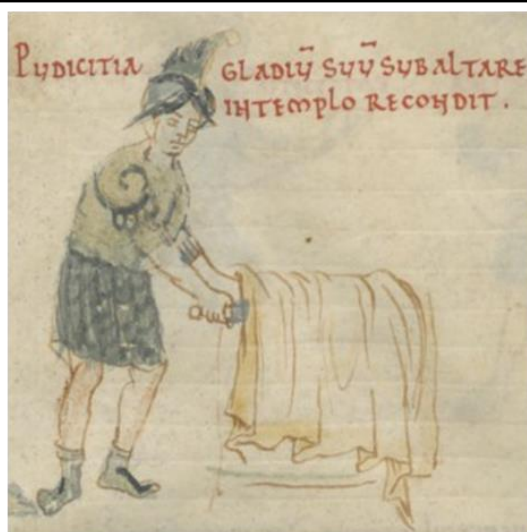 PUDICITIA GLADIŪ SUŪ SUB ALTARE
IN TEMPLO RECONDIT.